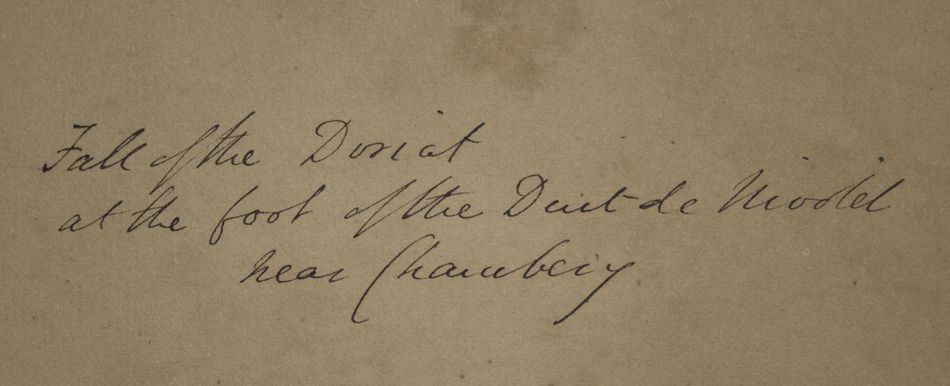 Fall of the Doriat
at the foot of the Dent de Nivolet
near Chambery